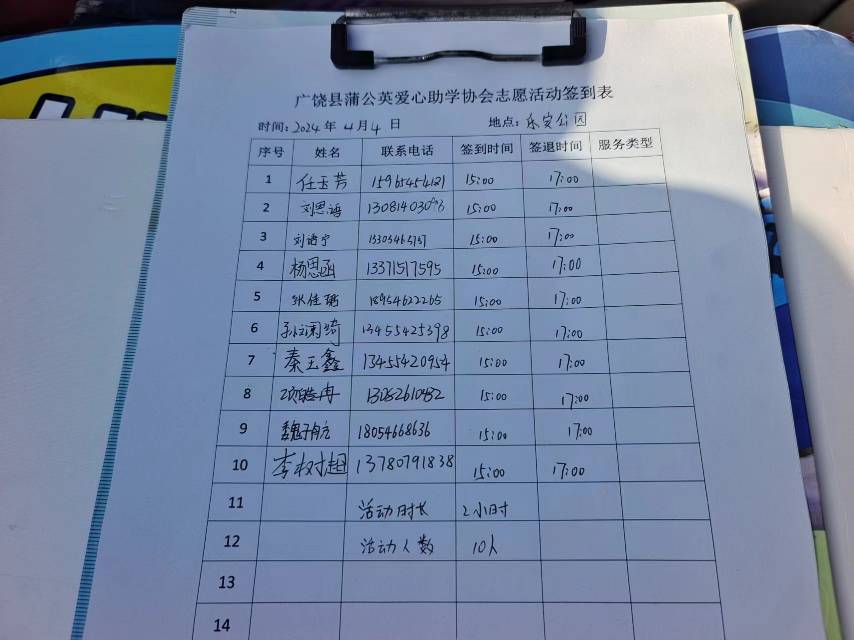 广饶县蒲公英爱心助学协会志愿活动签到表
时间: 2024 年 4 月 4 日 地点: 乐安公园
序号 姓名 联系电话 签到时间 签退时间 服务类型
1 任玉芳 15965454121 15:00 17:00
2 刘思涵 15:00 17:00
3 刘语宁 15:00 17:00
4 杨思函 13371517595 15:00 17:00
5 张佳瑶 18954622265 15:00 17:00
6 13455425398 15:00 17:00
7 秦玉鑫 13455420954 15:00 17:00
8 15:00 17:00
9 魏子航 18054668636 15:00 17:00
10 李树超 13780791838 15:00 17:00
11 活动时长 2小时
12 活动人数 10人
13
14